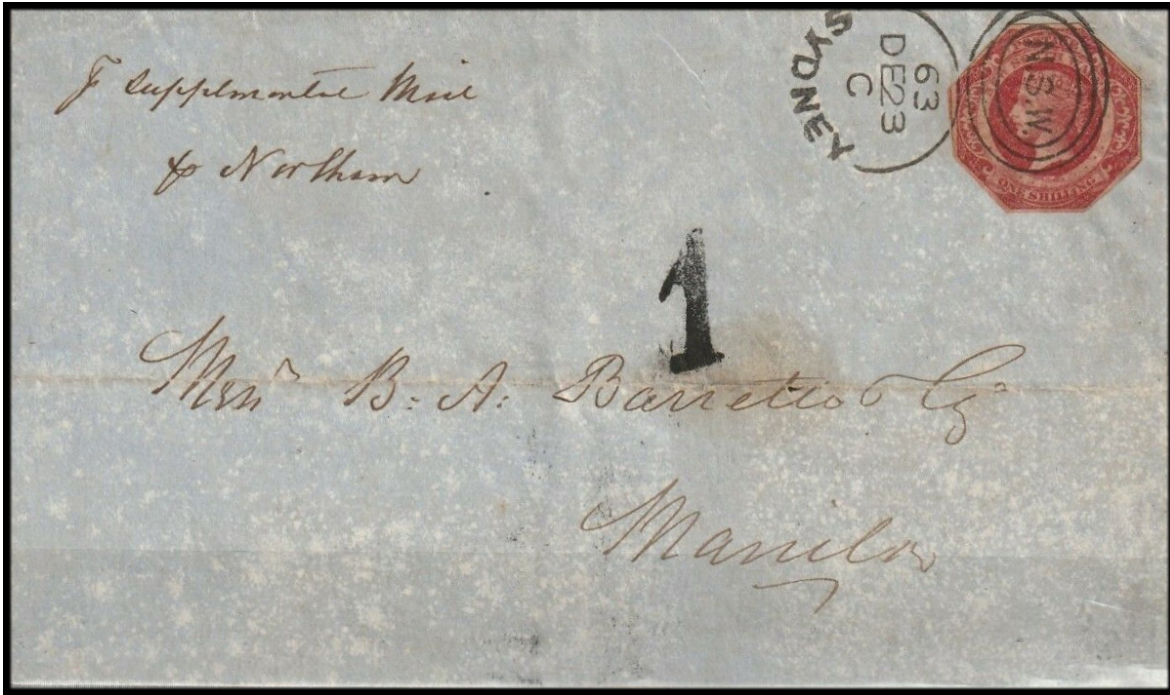 Supplementre Mail
Northam
SYDNEY
C
DE 23
63
N.S.W.
ONE SHILLING
1
Messrs B. A. Barretto & Co
Manila